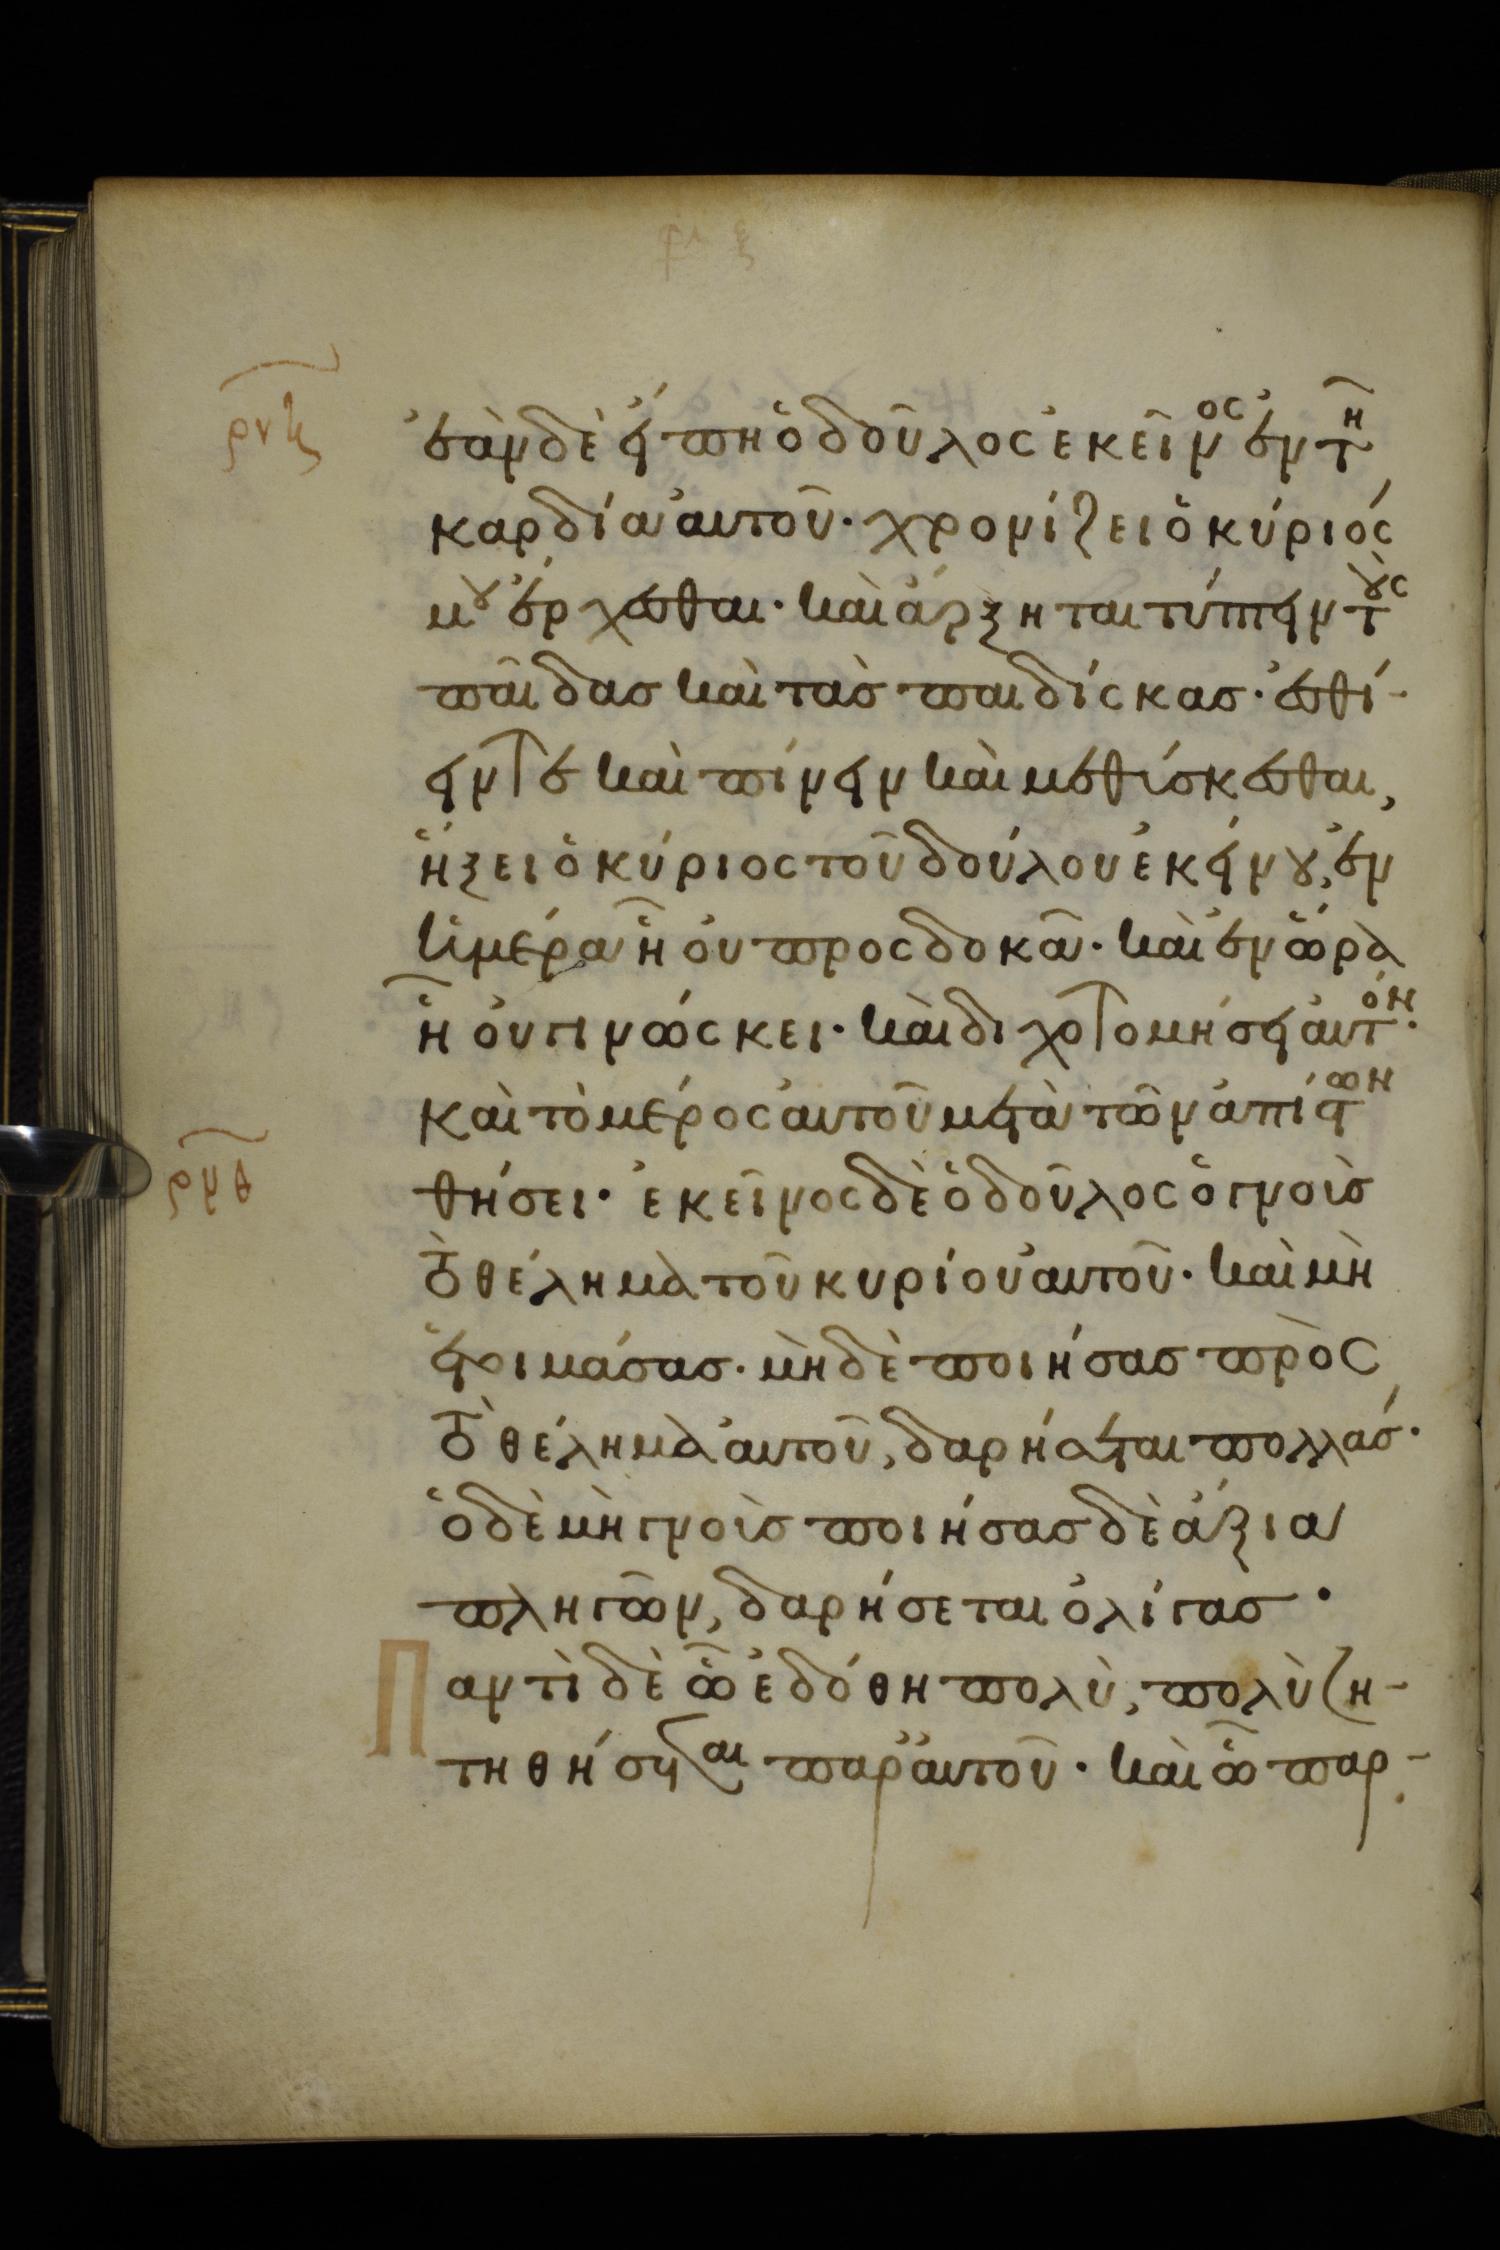 ρνζ
ἐὰν δὲ εἴπη ὁ δοῦλος ἐκεῖνος ἐν τῆ
καρδία αὐτοῦ· χρονίζει ὁ κύριός
μου ἔρχεσθαι· καὶ ἄρξηται τύπτειν τοὺς
παῖδας καὶ τὰς παιδίσκας· ἐσθί-
ειν τε καὶ πίνειν καὶ μεθύσκεσθαι,
ἥξει ὁ κύριος τοῦ δούλου ἐκείνου, ἐν
ἡμέρα ἧ οὐ προσδοκᾶ· καὶ ἐν ὥρα
ἧ οὐ γινώσκει· καὶ διχοτομήσει αὐτόν·
καὶ τὸ μέρος αὐτοῦ μετὰ τῶν ἀπίστων
ρνθ
θήσει· ἐκεῖνος δὲ ὁ δοῦλος ὁ γνοὺς
τὸ θέλημα τοῦ κυρίου αὐτοῦ· καὶ μὴ
ἑτοιμάσας· μηδὲ ποιήσας πρὸς
τὸ θέλημα αὐτοῦ, δαρήσεται πολλάς·
ὁ δὲ μὴ γνοὺς ποιήσας δὲ ἄξια
πληγῶν, δαρήσεται ὀλίγας·
Παντὶ δὲ ὧ ἐδόθη πολὺ, πολὺ ζη-
τηθήσεται παρ' αὐτοῦ· καὶ ὧ παρ-